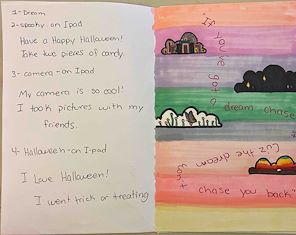 1- Dream
2- spooky on Ipad
Have a Happy Halloween!
Take two pieces of candy.
3- camera - on Ipad
My camera is so cool!
I took pictures with my
friends.
4- Halloween - on I-pad
I Love Halloween!
I went trick or treating
"If you've got a dream chase
Cuz the dream won't
chase you back"